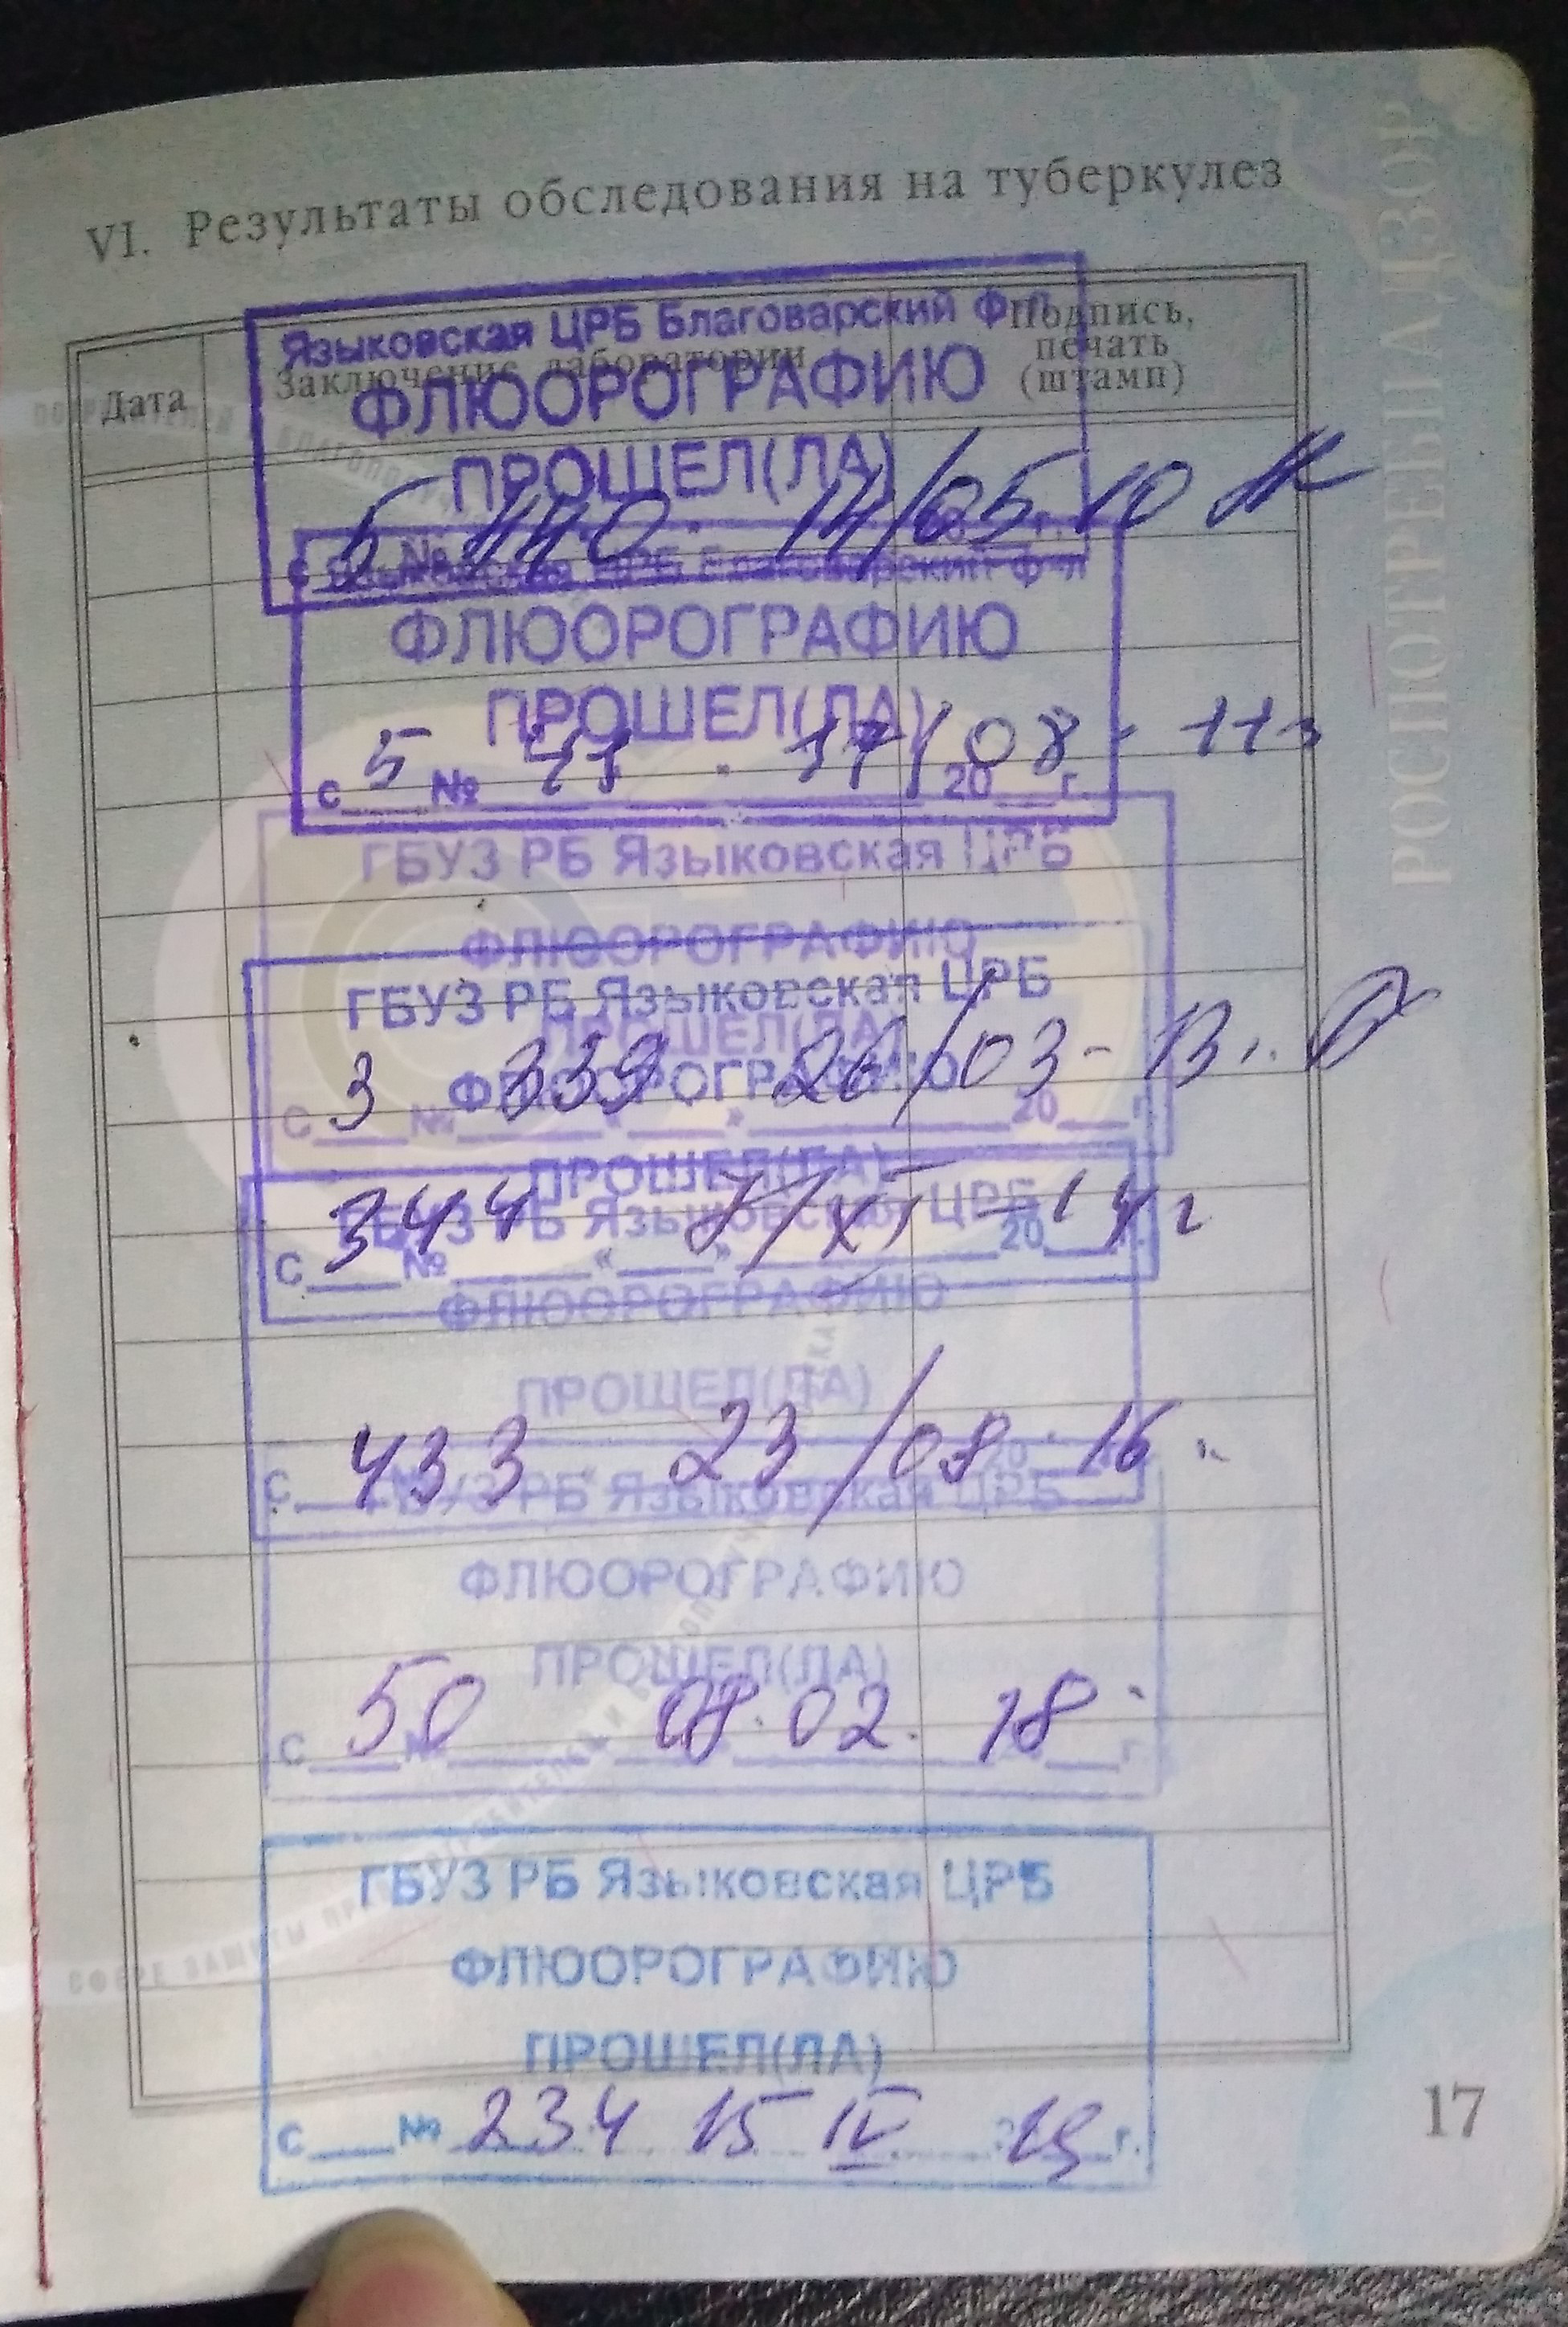 VI. Результаты обследования на туберкулез
Дата
Заключение лаборатории
Подпись,
печать
(штамп)
Языковская ЦРБ Благоварский ф-л
ФЛЮОРОГРАФИЮ
ПРОШЕЛ(ЛА)
с 5 № 440 14/05.10
Языковская ЦРБ Благоварский ф-л
ФЛЮОРОГРАФИЮ
ПРОШЕЛ(ЛА)
с 5 № 20 г. 08 11
ГБУЗ РБ Языковская ЦРБ
ФЛЮОРОГРАФИЮ
ПРОШЕЛ(ЛА)
С 3 № 339 « » 26/03-13 20 г.
ГБУЗ РБ Языковская ЦРБ
ФЛЮОРОГРАФИЮ
ПРОШЕЛ(ЛА)
С 344 № « » 7/XI-14г 20 г.
ГБУЗ РБ Языковская ЦРБ
ФЛЮОРОГРАФИЮ
ПРОШЕЛ(ЛА)
С 433 23/08.16 20
ГБУЗ РБ Языковская ЦРБ
ФЛЮОРОГРАФИЮ
ПРОШЕЛ(ЛА)
С 50 № 08.02.18 г
ГБУЗ РБ Языковская ЦРБ
ФЛЮОРОГРАФИЮ
ПРОШЕЛ(ЛА)
С № 234 15 IV 19 г.
17
РОСПОТРЕБНАДЗОР